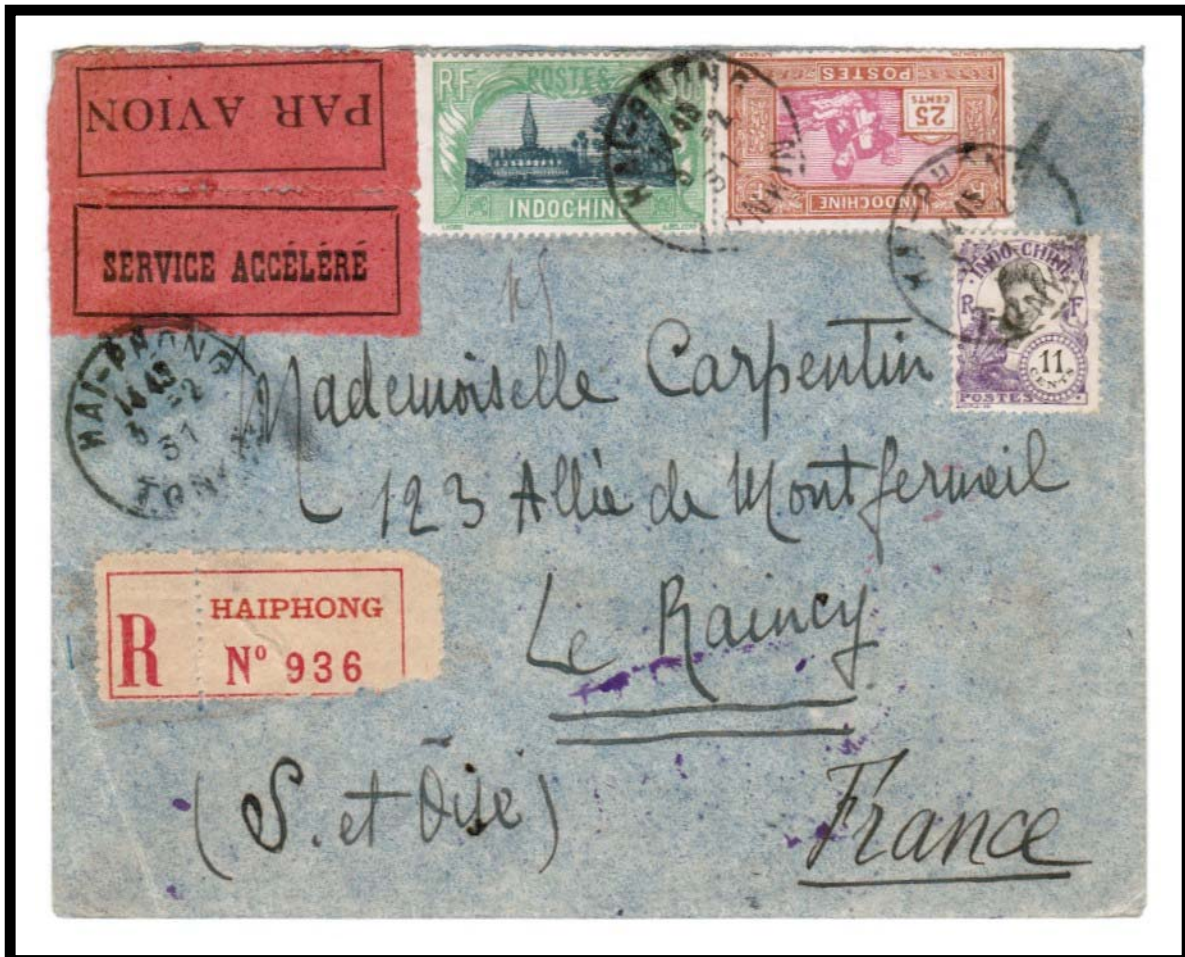 PAR AVION
SERVICE ACCÉLÉRÉ
RF POSTES
INDOCHINE
25
CENTS
POSTES
INDOCHINE
RF
HAI-PHONG
14 45
3 - 2
31
TONKIN
HAI-PHONG
14 45
TONKIN
INDO-CHINE
R F
11
CENTS
POSTES
HAI-PHONG
14 45
3 - 2
31
TONKIN
Mademoiselle Carpentin
123 Allée de Montfermeil
Le Raincy
(S. et Oise)
France
R
HAIPHONG
Nº 936